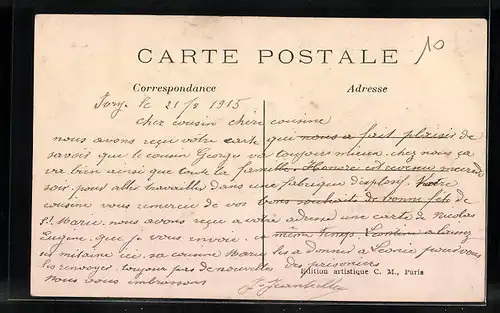 10
CARTE POSTALE
Correspondance
Adresse
Ivry le 21/8 1915
cher cousin chère cousine
nous avons reçu vôtre carte qui nous a fait plaisir de
savoir que le cousin George va toujours mieux. chez nous ça
va bien ainsi que toute la famille. Honoré est revenu mercredi
soir pour aller travailler dans une fabrique d'explosif. Notre
cousine vous remercie de vos bons souhaits de bonne fête de
Ste Marie. nous avons reçu a vôtre adresse une carte de Nicolas
Eugène que je vous envoie. en même temps
militaire ici. sa cousine Marie les a donner a Leonie pour vous
les renvoyer. toujour pas de nouvelles des prisoniers
nous vous embrassons
Edition artistique C. M., Paris